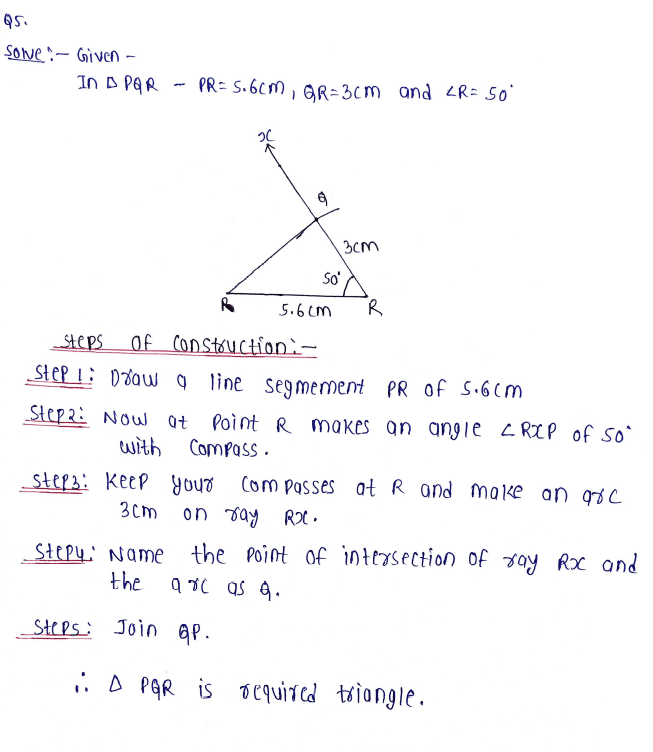 Q5.
Solve :- Given -
In Δ PQR - PR = 5.6cm, QR = 3cm and ∠R = 50°
x
Q
3cm
50°
R
5.6cm
R
Steps of Construction :-
Step 1: Draw a line segmement PR of 5.6cm
Step2: Now at point R makes an angle ∠RxP of 50°
with Compass.
Step3: Keep your Compasses at R and make an arc
3cm on ray Rx.
Step4: Name the point of intersection of ray Rx and
the arc as Q.
Step5: Join QP.
∴ Δ PQR is required triangle.